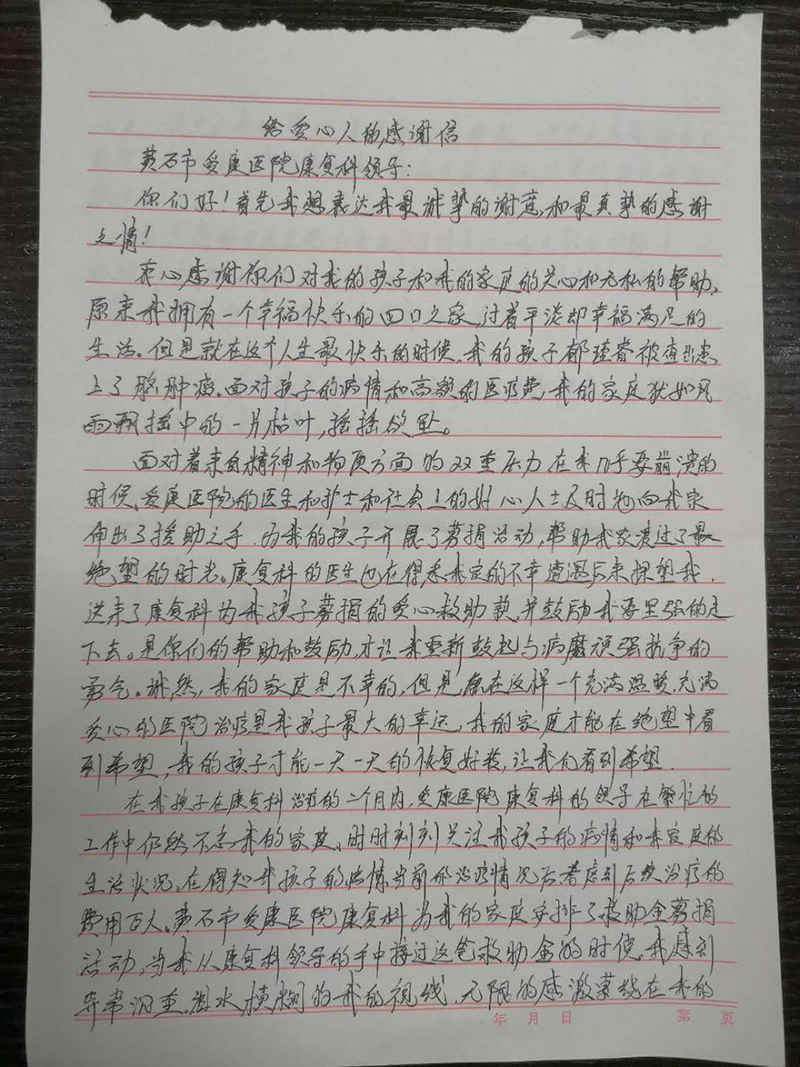 给爱心人的感谢信
黄石市爱康医院康复科领导：
你们好！首先我想表达我最诚挚的谢意和最真挚的感谢
之情！
衷心感谢你们对我的孩子和我的家庭的关心和无私的帮助。
原来我拥有一个幸福快乐的四口之家，过着平淡却幸福满足的
生活。但是就在这个人生最快乐的时候，我的孩子郁瑾睿被查出患
上了脑肿瘤。面对孩子的病情和高额的医疗费，我的家庭犹如风
雨飘摇中的一片枯叶，摇摇欲坠。
面对着来自精神和物质方面的双重压力在我几乎要崩溃的
时候，爱康医院的医生和护士和社会上的好心人士及时地向我家
伸出了援助之手，为我的孩子开展了募捐活动，帮助我家渡过了最
绝望的时光。康复科的医生也在得悉我家的不幸遭遇后来探望我，
送来了康复科为我孩子募捐的爱心救助款，并鼓励我要坚强的走
下去。是你们的帮助和鼓励，才让我重新鼓起与病魔顽强抗争的
勇气。诚然，我的家庭是不幸的，但是能在这样一个充满温暖，充满
爱心的医院治疗是我孩子最大的幸运，我的家庭才能在绝望中看
到希望，我的孩子才能一天一天的恢复好转，让我们看到希望。
在我孩子在康复科治疗的二个月内，爱康医院康复科的领导在繁忙的
工作中仍然不忘我的家庭，时时刻刻关注我孩子的病情和我家庭的
生活状况。在得知我孩子的病情当前的治疗情况后考虑到后续治疗的
费用巨大。黄石市爱康医院康复科为我的家庭安排了救助金募捐
活动，当我从康复科领导的手中接过这笔救助金的时候，我感到
异常沉重。泪水模糊的我的视线，无限的感激萦绕在我的
年 月 日 第 页